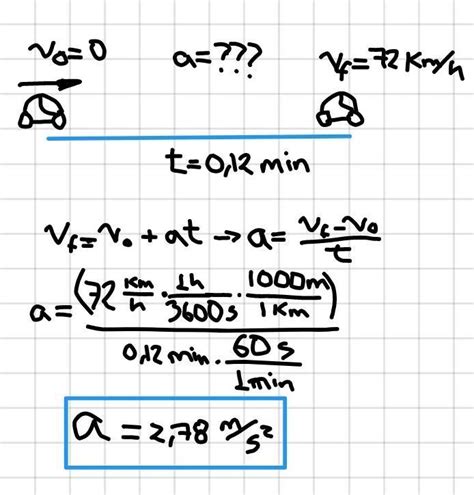 v₀=0 a=??? v_f=72 Km/h
t=0,12 min
v_f=v₀+at→a=(v_f-v₀)/t
a=(72 Km/h · 1h/3600s · 1000m/1Km)/(0,12 min · 60 s/1min)
a=2,78 m/s²